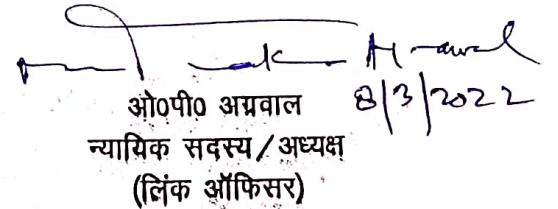 8/3/2022
ओ०पी० अग्रवाल
न्यायिक सदस्य/अध्यक्ष
(लिंक ऑफिसर)